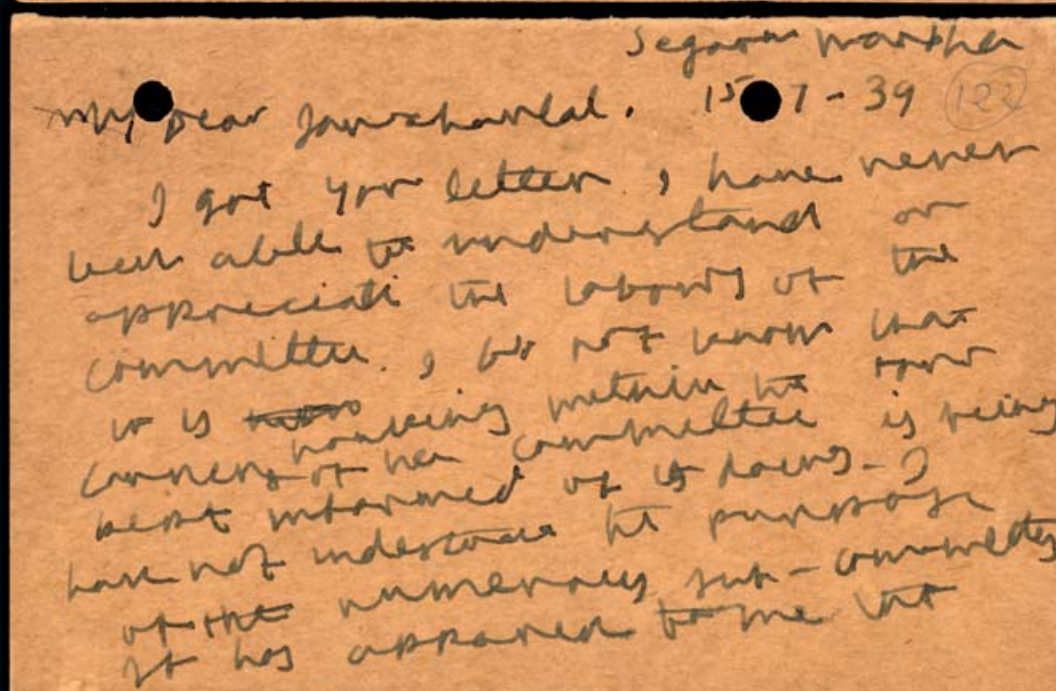 Segaon Wardha
15-7-39
122
My Dear Jawaharlal,
I got your letter. I have never
been able to understand or
appreciate the labours of the
committee. I do not know that
it is
working within the four
corners of the committee is being
kept informed of its doings - I
have not understood the purpose
of the numerous sub-committees
It has appeared to me that